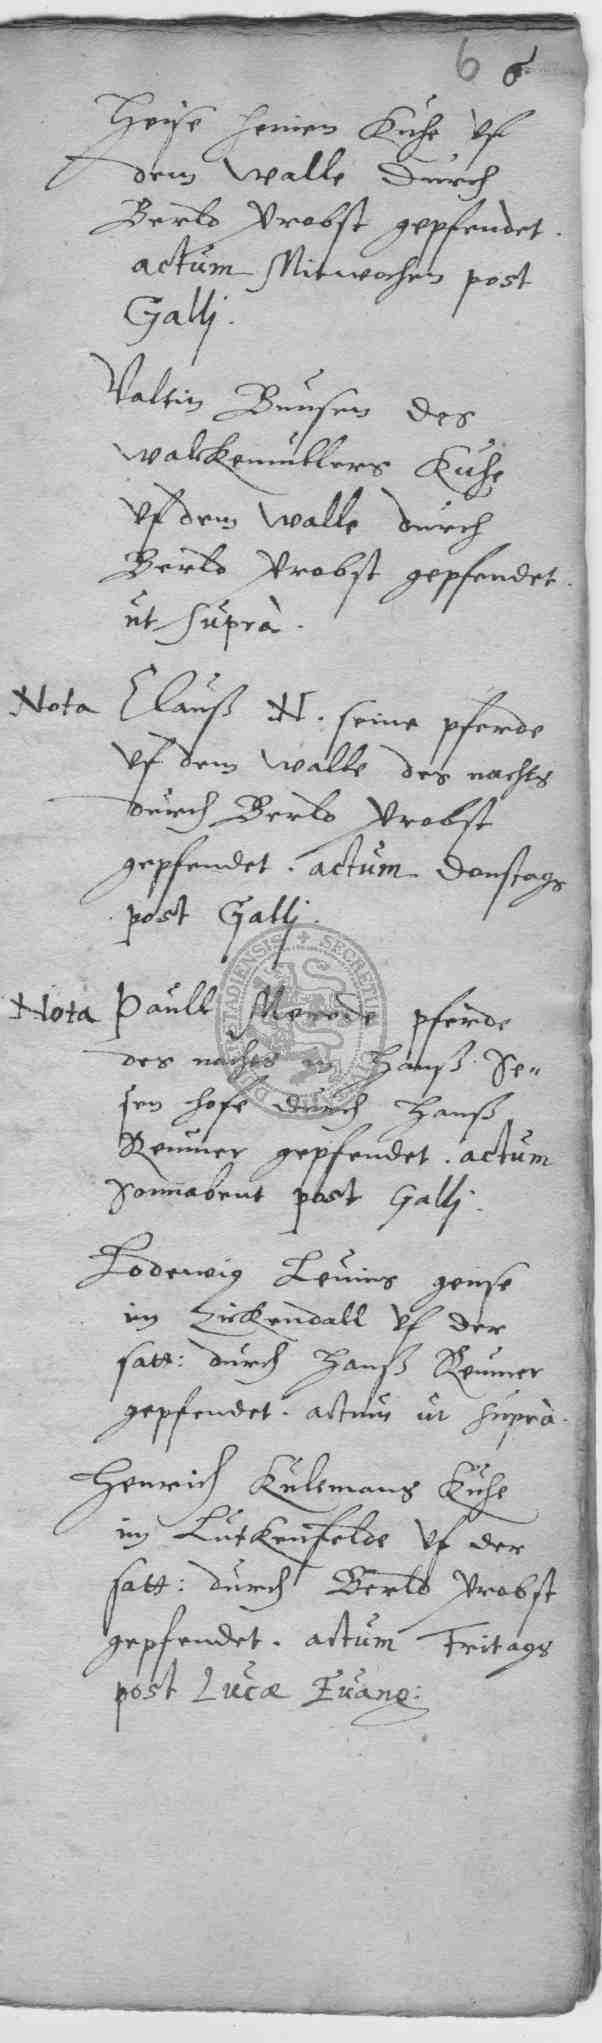 6 6
Heise Heinen Kuhe uf
dem Walle durch
Berld Probst gepfendet.
actum Mitwochen post
Gallj.
Valtin Bunsen des
walckemullers Kuhe
uf dem Walle durch
Berld Probst gepfendet.
ut suprà.
Nota Clauß N. seine pferde
uf dem Walle des nachts
durch Berld Probst
gepfendet. actum Donstags
post Gallj.
Nota Paull Merode pferde
des nachts in Hanß Se=
sen hofe durch Hanß
Reumer gepfendet. actum
Sonnabent post Gallj.
Lodewig Leuins gense
im Zirckendall uf der
satt: durch Hanß Reumer
gepfendet. actum ut suprà.
Henrich Kulemans Kuhe
im Lutkenfelde uf der
satt: durch Berld Probst
gepfendet. actum Fritags
post Lucæ Euang: